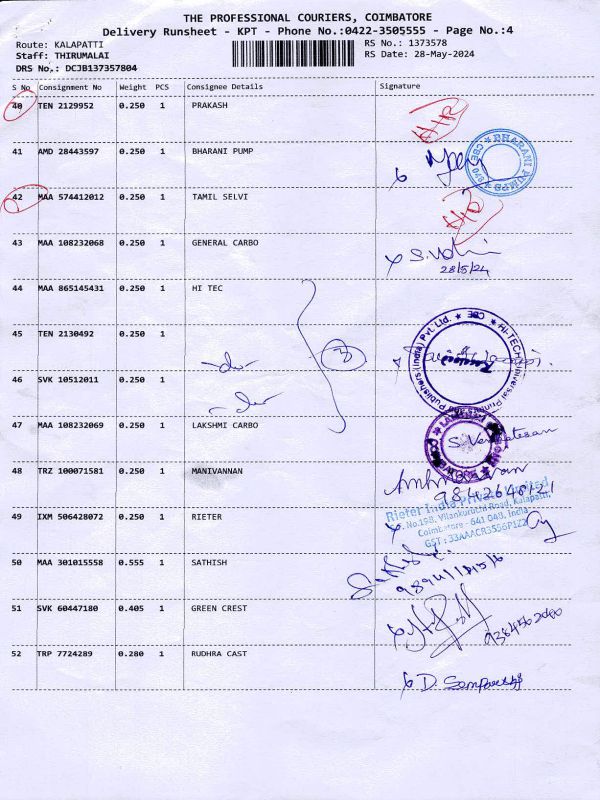 THE PROFESSIONAL COURIERS, COIMBATORE
Delivery Runsheet - KPT - Phone No.:0422-3505555 - Page No.:4
Route: KALAPATTI
RS No.: 1373578
Staff: THIRUMALAI
RS Date: 28-May-2024
DRS No.: DCJB137357804
S No Consignment No Weight PCS Consignee Details Signature
40 TEN 2129952 0.250 1 PRAKASH
41 AMD 28443597 0.250 1 BHARANI PUMP
BHARANI PUMPS
CBE
42 MAA 574412012 0.250 1 TAMIL SELVI
43 MAA 108232068 0.250 1 GENERAL CARBO
28/5/24
44 MAA 865145431 0.250 1 HI TEC
45 TEN 2130492 0.250 1
-do-
3
HI-TECH Universal Printers and Publishers (India) Pvt. Ltd. CBE
Received
46 SVK 10512011 0.250 1
-do-
47 MAA 108232069 0.250 1 LAKSHMI CARBO
S. Venkatesan
48 TRZ 100071581 0.250 1 MANIVANNAN
49 IXM 506428072 0.250 1 RIETER
Rieter India Private Limited
No.198, Vilankuruchi Road, Kalapatti,
Coimbatore - 641 048, India
50 MAA 301015558 0.555 1 SATHISH
51 SVK 60447180 0.405 1 GREEN CREST
52 TRP 7724289 0.280 1 RUDHRA CAST